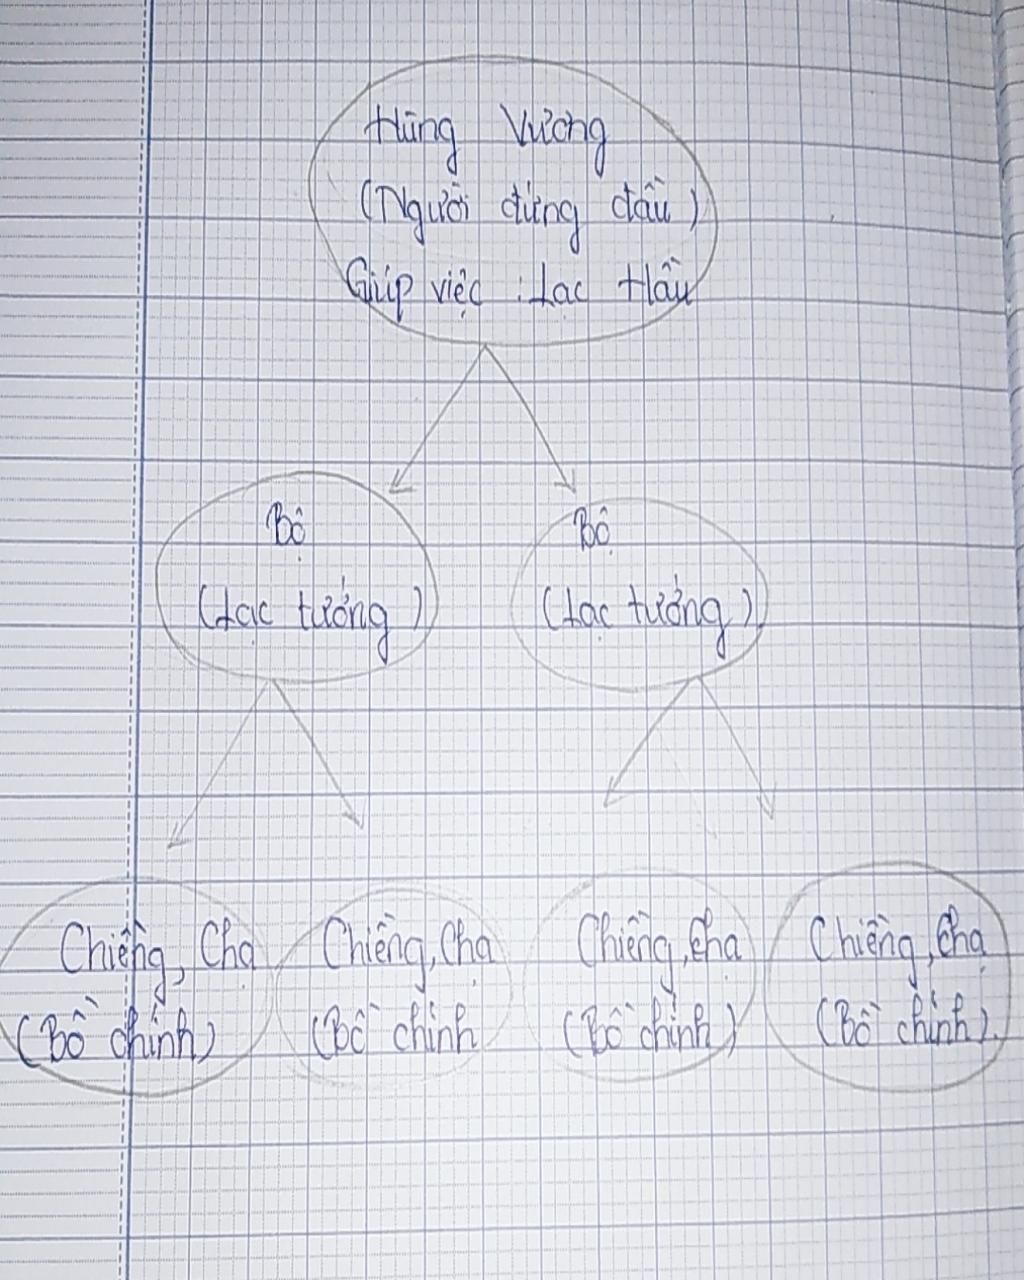 Hùng Vương
(Người đứng đầu)
Giúp việc : Lạc Hầu
Bộ
(Lạc tướng)
Bộ
(Lạc tướng)
Chiềng, Chạ
(Bồ chính)
Chiềng, Chạ
(Bồ chính
Chiềng, Chạ
(Bồ chính)
Chiềng, Chạ
(Bồ chính).